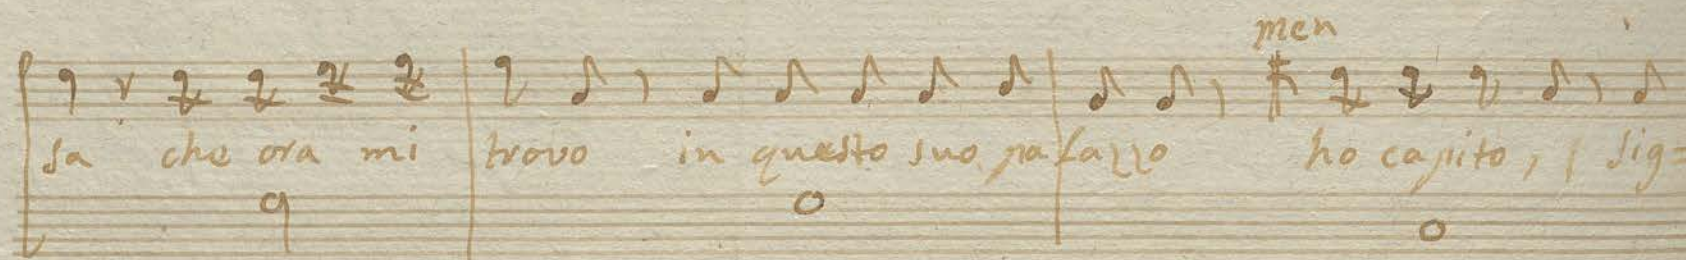 men
sa che ora mi trovo in questo suo palazzo ho capito, sig=